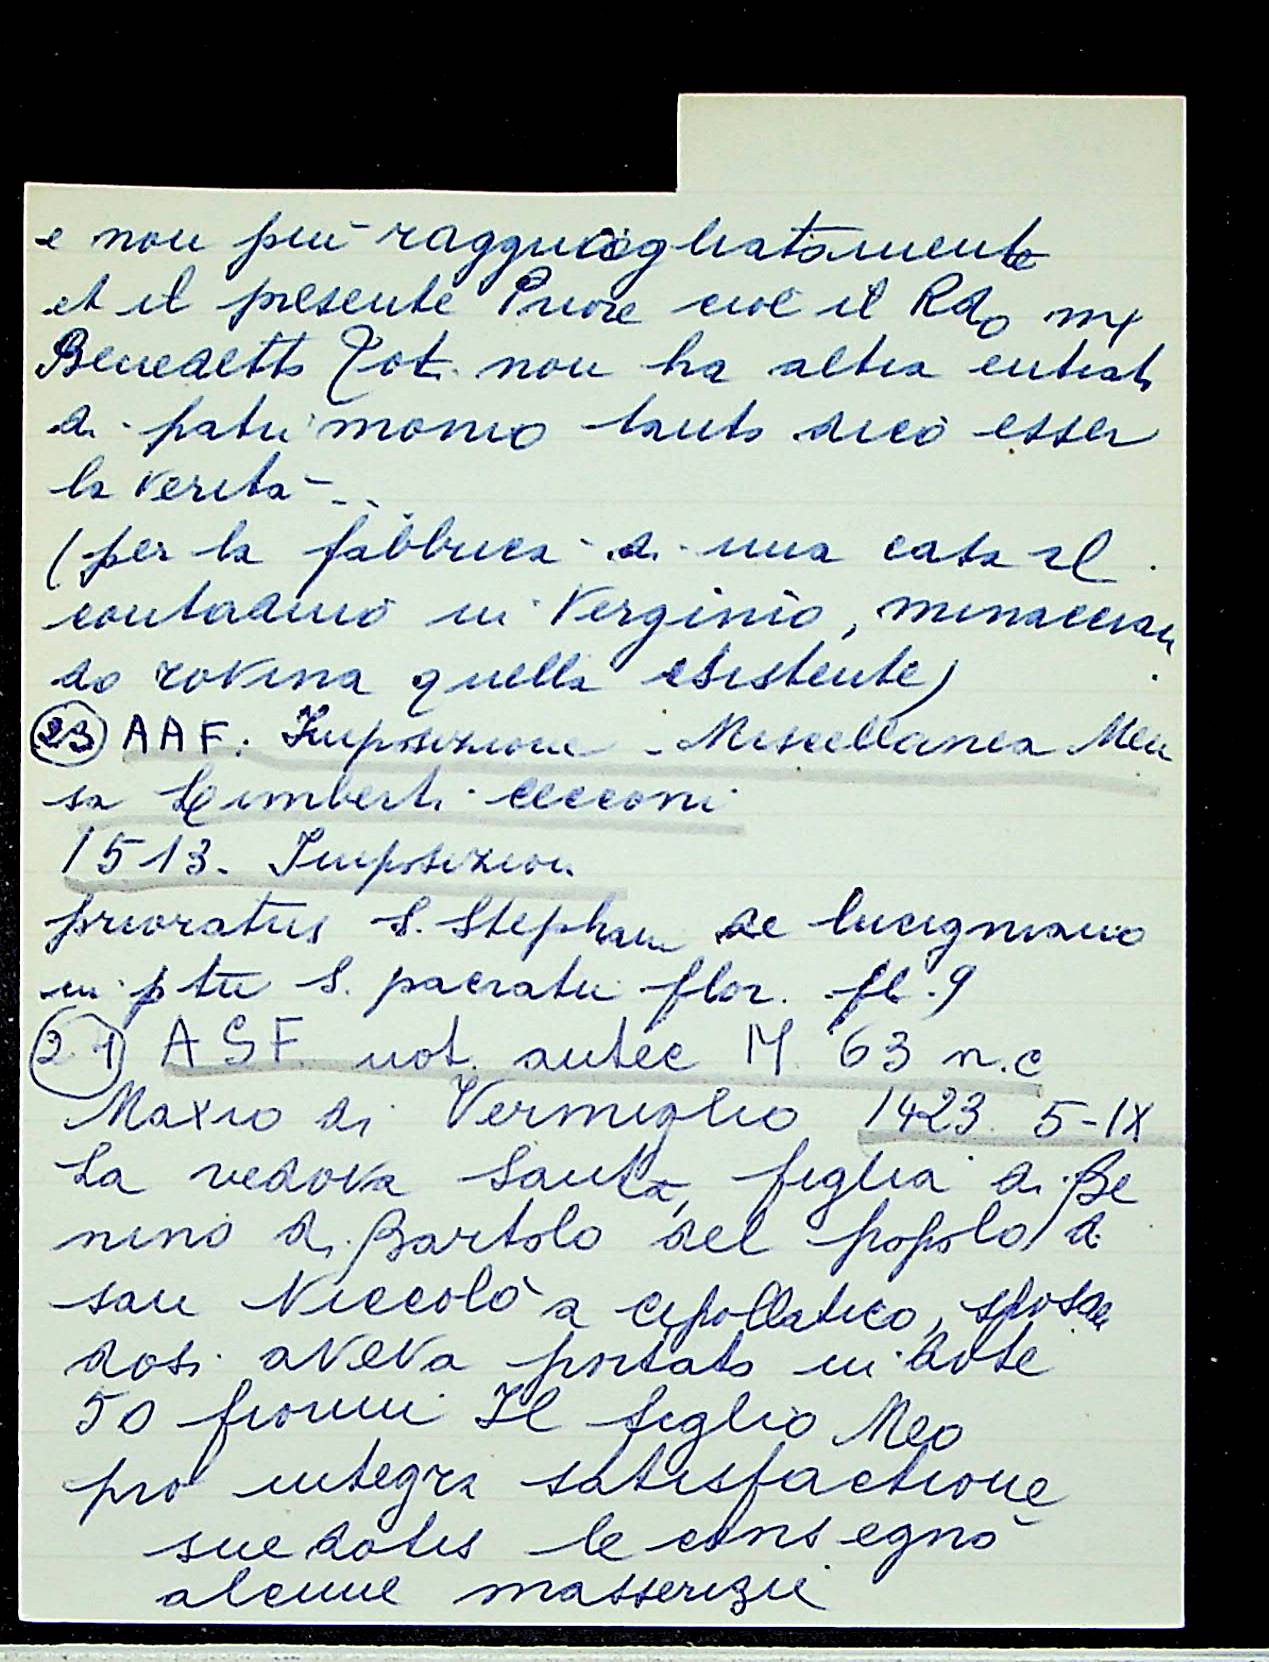 e non più ragguagliatamente
et il presente Priore cioè il Rdo
Benedetto non ha altra entrata
di patrimonio tanto dico esser
la verità -..
(per la fabbrica di una casa al
contadino in Verginio, minaccian
do rovina quella esistente)
23 AAF. Imposizione - Miscellanea Men
sa Limberti Cecconi
1513. Imposizion
prioratus S. Stephani de lucigniano
in ptu S. pacratii flor. fl. 9
21 ASF. not. antec M 63 n.c
Maxio di Vermiglio 1423. 5-IX
La vedova Santa, figlia di Be
nino di Bartolo del popolo di
san Niccolò a cepollatico, sposan
dosi aveva portato in dote
50 fiorini Il figlio Meo
pro integra satisfactione
sue dotis le consegnò
alcune masserizie